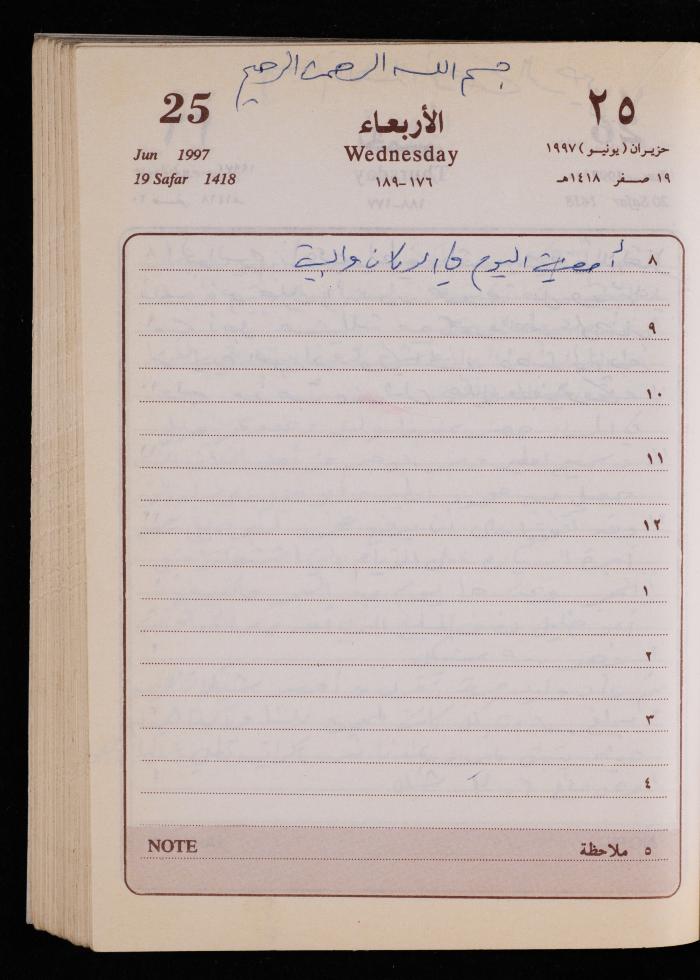 بسم الله الرحمن الرحيم
25
٢٥
الأربعاء
Jun 1997
Wednesday
حزيران (يونيو) ١٩٩٧
19 Safar 1418
١٧٦-١٨٩
١٩ صفر ١٤١٨هـ
٨ أمضيت اليوم في الدكان والبيت
٩
١٠
١١
١٢
١
٢
٣
٤
NOTE
٥ ملاحظة